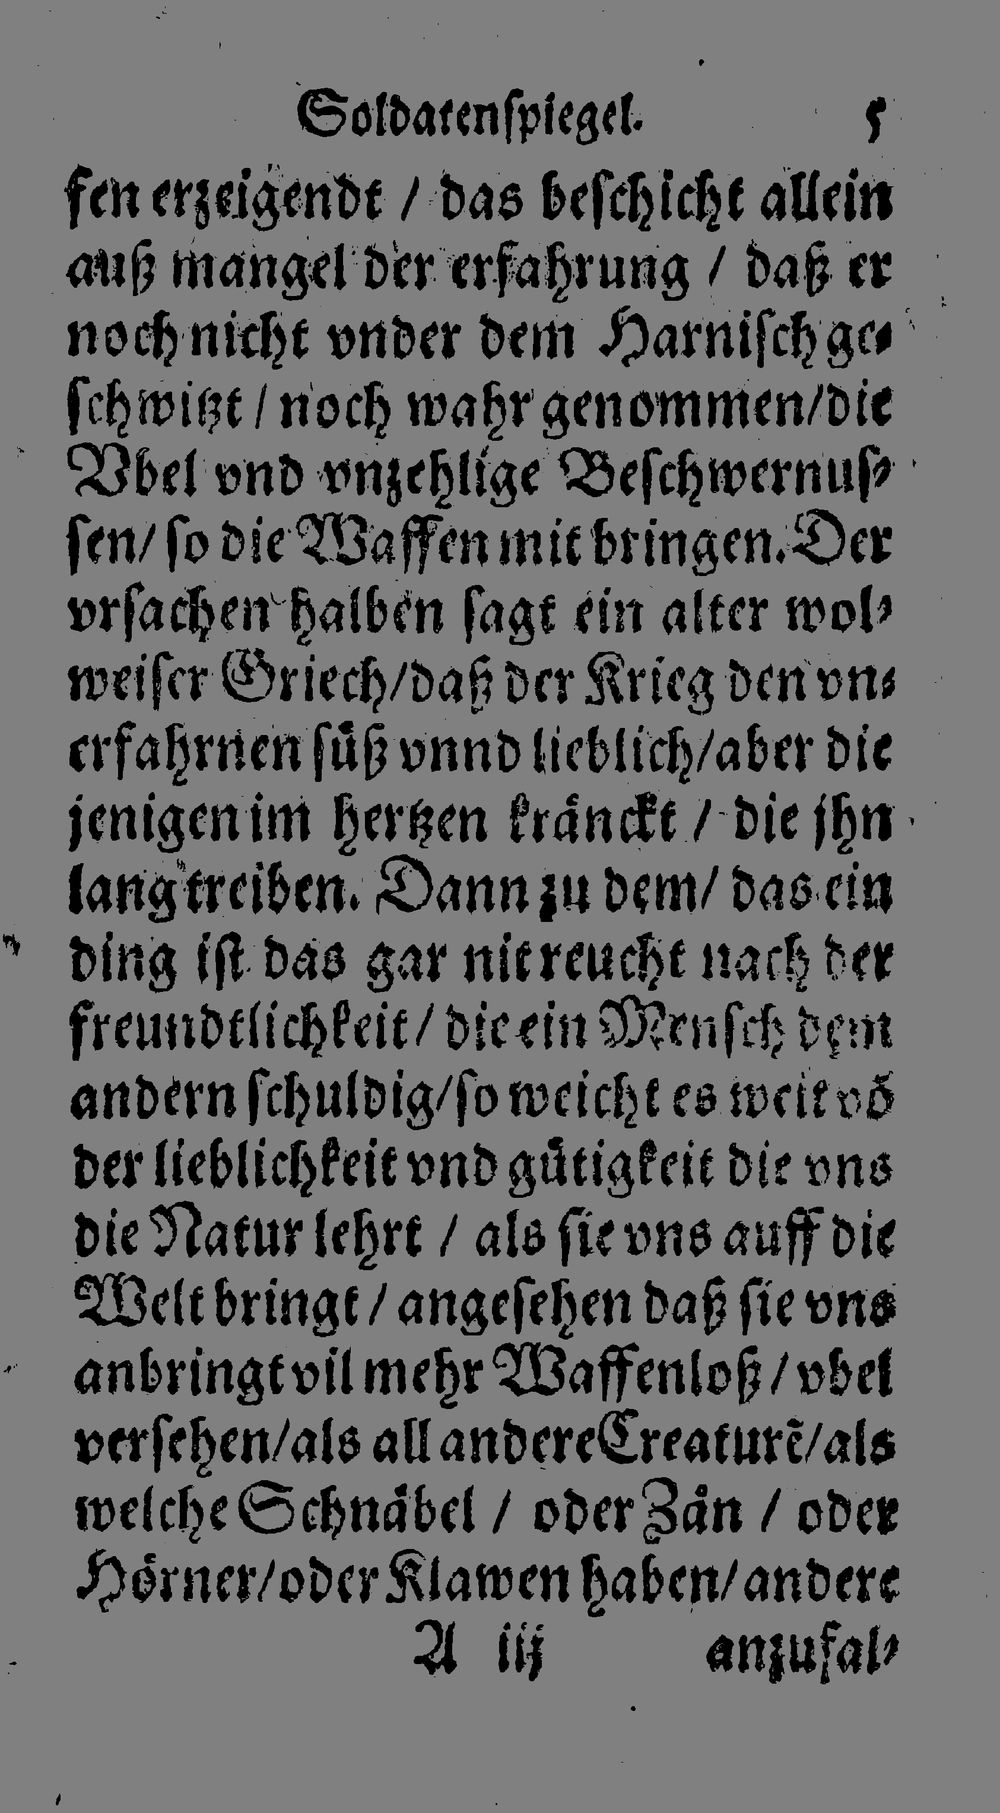 Soldatenſpiegel. 5
fen erzeigendt / das beſchicht allein
auß mangel der erfahrung / daß er
noch nicht vnder dem Harniſch ge⸗
ſchwitzt / noch wahr genommen/die
Vbel vnd vnzehlige Beſchwernuſ⸗
ſen/ ſo die Waffen mit bringen. Der
vrſachen halben ſagt ein alter wol⸗
weiſer Griech/daß der Krieg den vn⸗
erfahrnen ſuͤß vnnd lieblich/aber die
jenigen im hertzen kraͤnckt / die jhn
lang treiben. Dann zu dem/ das ein
ding iſt das gar nit reucht nach der
freundtlichkeit/ die ein Menſch dem
andern ſchuldig/ſo weicht es weit võ
der lieblichkeit vnd guͤtigkeit die vns
die Natur lehrt / als ſie vns auff die
Welt bringt / angeſehen daß ſie vns
anbringt vil mehr Waffenloß / vbel
verſehen/als all andere Creaturẽ/als
welche Schnaͤbel / oder Zaͤn / oder
Hoͤrner/oder Klawen haben/andere
A iij anzufal⸗